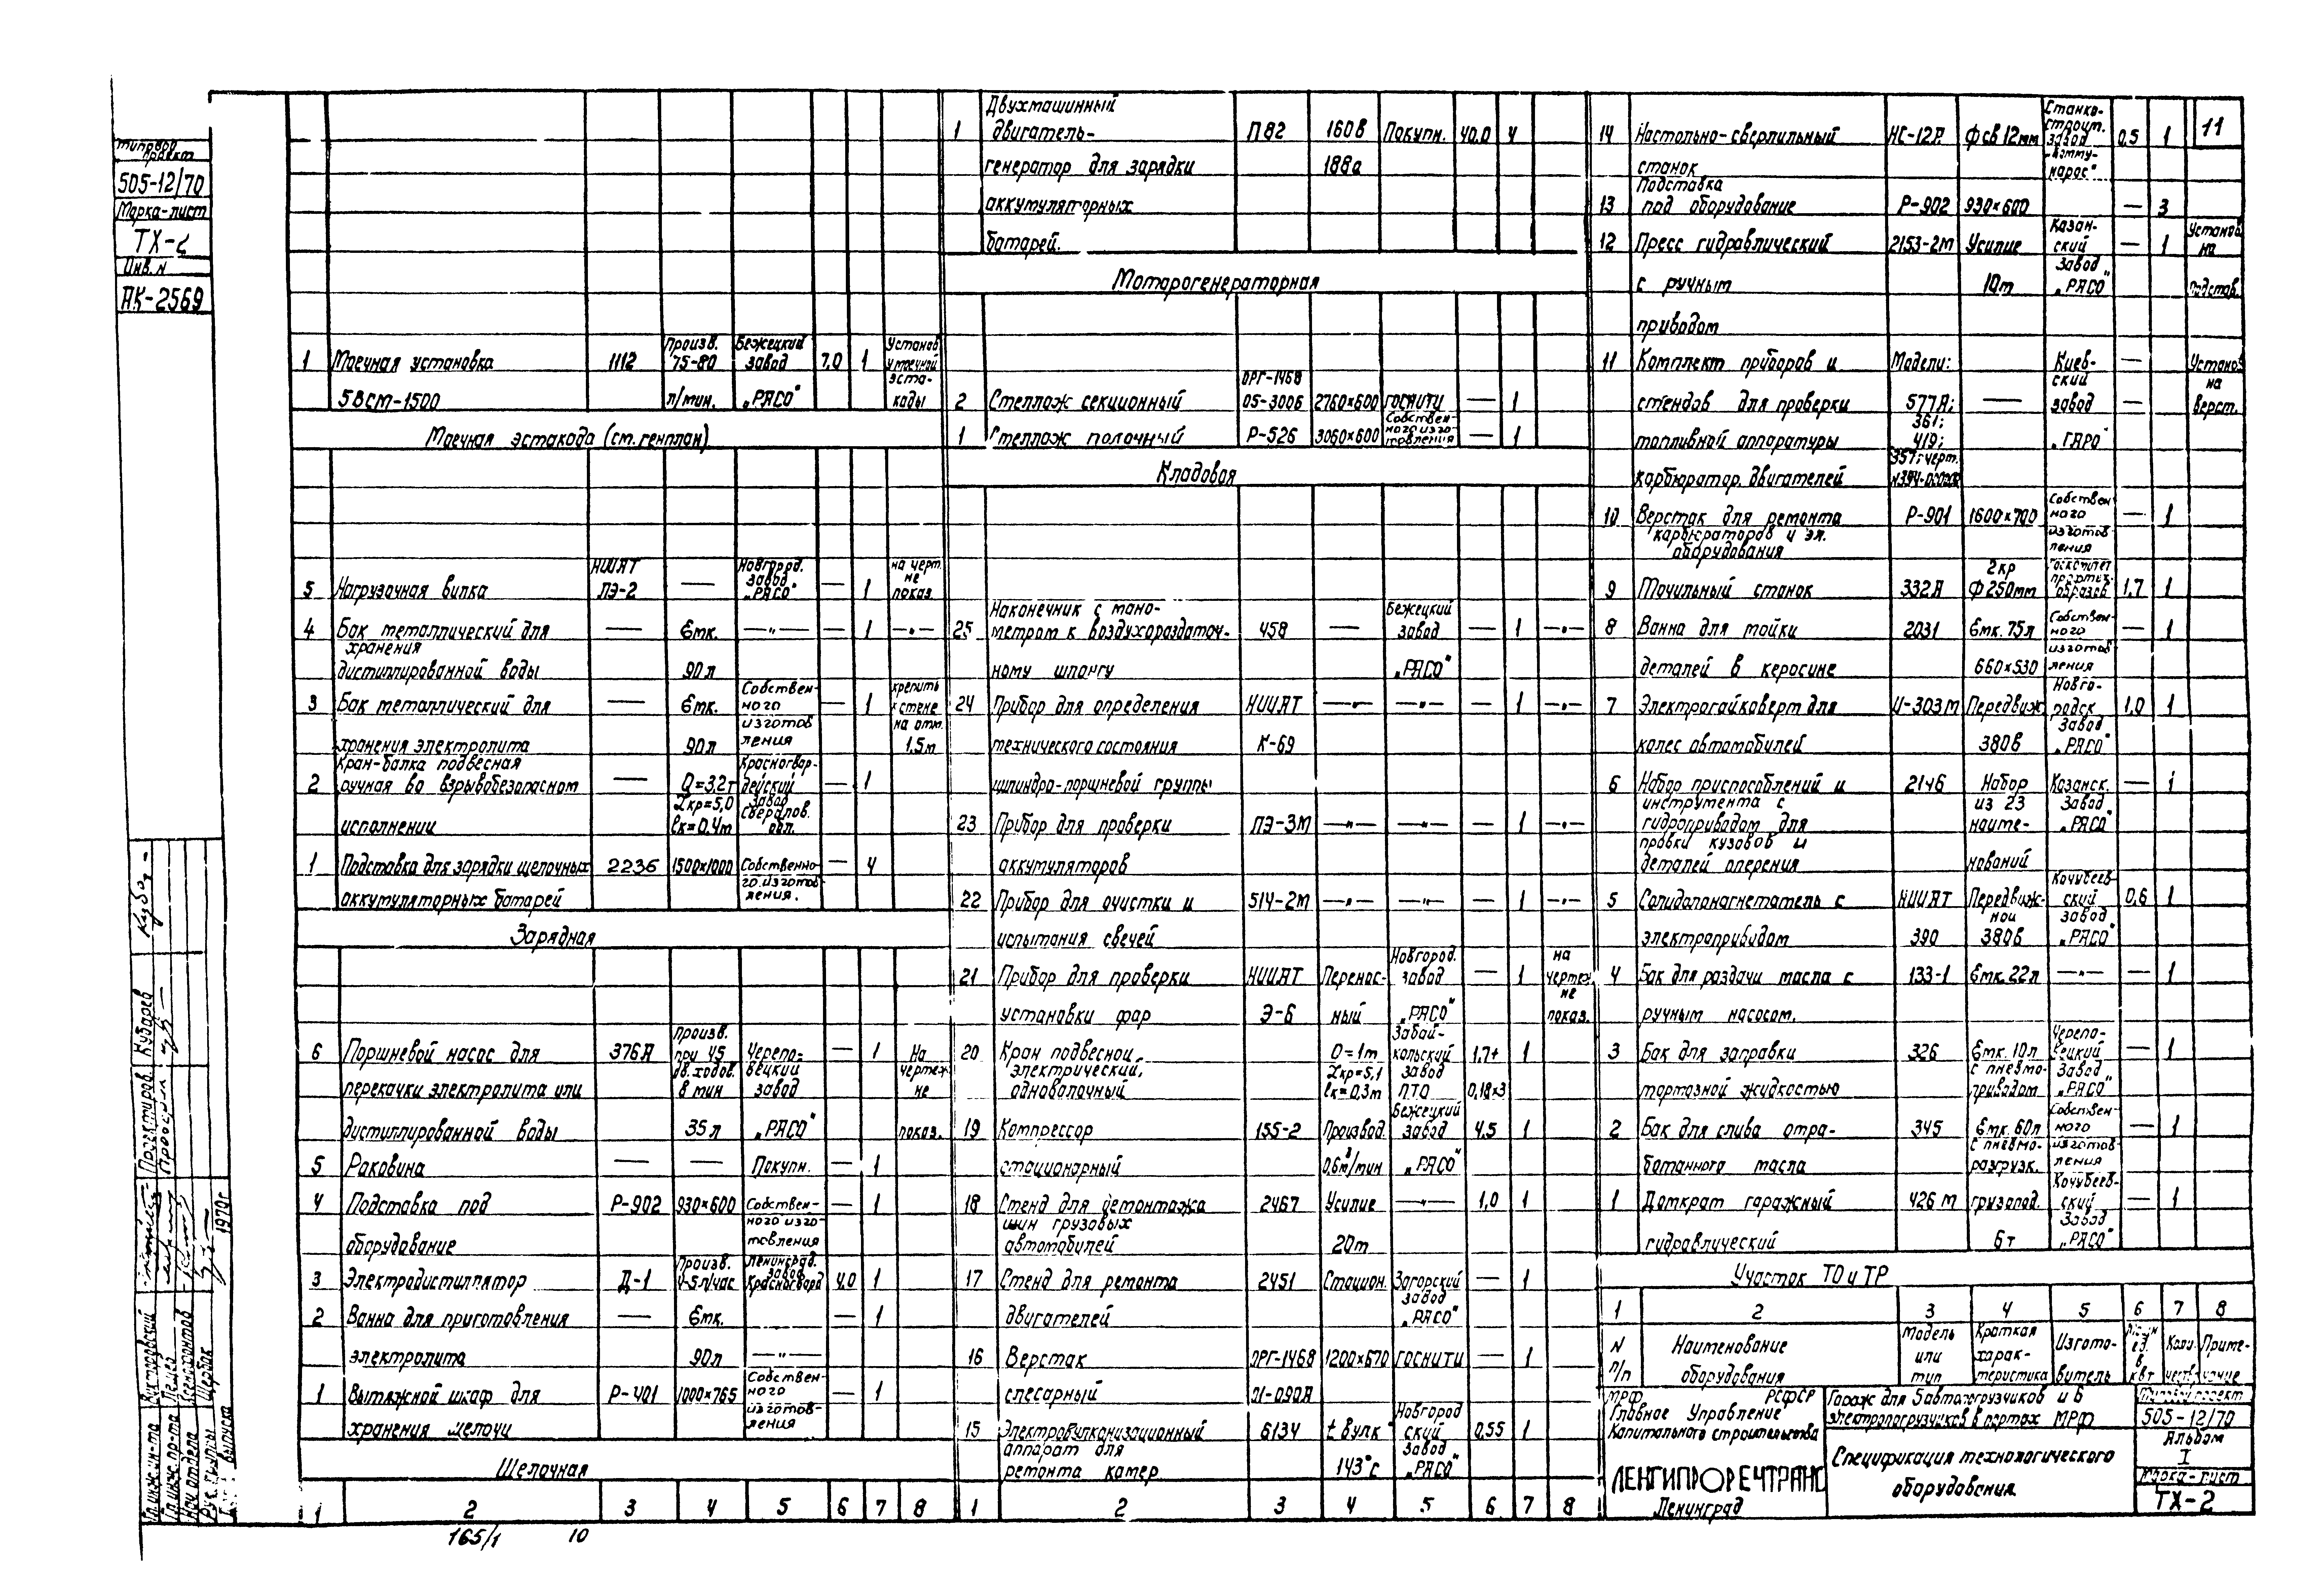 Типовой
проект
505-12/70
Марка-лист
ТХ-2
Инв. N
АК-2569
1 Моечная установка 1112 Произв. 75-80 Бежецкий завод 7,0 1 Установ
58см-1500 л/мин. „РАСО" эста-
кады
Моечная эстакада (см. генплан)
5 Нагрузочная вилка НИИАТ ЛЭ-2 — Новгород. завод „РАСО" — 1 на черт. не показ.
4 Бак металлический для — Емк. —"— — 1 —"—
хранения
дистиллированной воды 90л
3 Бак металлический для — Емк. Собствен-
ного — 1 крепить к стене
хранения электролита 90л изготов
ления на отм. 1,5м
2 Кран-балка подвесная
ручная во взрывобезопасном — Q=3,2т Красногвар-
дейский — 1
исполнении Lкр=5,0
lк=0,4м завод Свердлов. обл.
1 Подставка для зарядки щелочных 2236 1500x1000 Собственно- — 4
аккумуляторных батарей го изготов-
ления.
Зарядная
6 Поршневой насос для 376А Произв. при 45 Черепо- — 1 На
перекачки электролита или дв. ходов. 8 мин вецкий завод чертеж не
дистиллированной воды 35л „РАСО" показ.
5 Раковина — — Покупн. — 1
4 Подставка под Р-902 930x600 Собствен- — 1
оборудование ного изго-
товления
3 Электродистиллятор Д-1 Произв. 4-5л/час Ленинград. завод Красногвард 4,0 1
2 Ванна для приготовления — Емк. — 1
электролита 90л —"—
1 Вытяжной шкаф для Р-401 1000x765 Собствен-
ного — 1
хранения щелочи изготов-
ления
Щелочная
1 2 3 4 5 6 7 8
165/1 10
1 Двухмашинный
двигатель- П82 160в Покупн. 40,0 4
генератор для зарядки 188а
аккумуляторных
батарей.
Моторогенераторная
2 Стеллаж секционный ОРГ-1468 05-3006 2760x600 ГОСНИТИ — 1
1 Стеллаж полочный Р-526 3060x600 Собствен-
ного изго-
товления — 1
Кладовая
25 Наконечник с мано-
метром к воздухораздаточ- 458 — Бежецкий завод — 1 —"—
ному шлангу „РАСО"
24 Прибор для определения НИИАТ —"— —"— — 1 —"—
технического состояния К-69
цилиндро-поршневой группы
23 Прибор для проверки ЛЭ-3М —"— —"— — 1 —"—
аккумуляторов
22 Прибор для очистки и 514-2М —"— —"— — 1 —"—
испытания свечей
21 Прибор для проверки НИИАТ Перенос- Новгород. завод — 1 на чертеж.
установки фар Э-6 ный „РАСО" не показ.
20 Кран подвесной Q=1т Забай-
кальский 1,7+ 1
электрический, Lкр=5,1 завод
однобалочный lк=0,3м ПТО 0,18x3
19 Компрессор 155-2 Производ. Бежецкий завод 4,5 1
стационарный 0,6м³/мин „РАСО"
18 Стенд для демонтажа 2467 Усилие —"— 1,0 1
шин грузовых
автомобилей 20т
17 Стенд для ремонта 2451 Стацион. Загорский — 1
двигателей завод „РАСО"
16 Верстак ОРГ-1468 1200x670 ГОСНИТИ — 1
слесарный 01-090А
15 Электровулканизационный 6134 t вулк Новгород
ский 0,55 1
аппарат для
ремонта камер 143°с завод „РАСО"
1 2 3 4 5 6 7 8
14 Настольно-сверлильный НС-12А Ф св 12мм Станко-
строит. завод 0,5 1
станок „Комму-
нарос"
13 Подставка
под оборудование Р-902 930x600 — 3
12 Пресс гидравлический 2153-2М Усилие Казан-
ский — 1 Установ на
с ручным 10т завод „РАСО" подстав.
приводом
11 Комплект приборов и Модели: Киев-
ский — Установ на
стендов для проверки 577А; — завод — верст.
топливной аппаратуры 361; 419; „ГАРО"
карбюратор. двигателей 357; черт.
10 Верстак для ремонта Р-901 1600x700 Собствен
ного — 1
карбюраторов и эл.
оборудования изготов
ления
9 Точильный станок 332А 2кр Ф 250мм 1,7 1
8 Ванна для мойки 2031 Емк. 75л Собствен-
ного — 1
деталей в керосине 660x530 изготов
ления
7 Электрогайковерт для И-303М Передвиж Новго-
родск. 1,0 1
колес автомобилей 380в завод „РАСО"
6 Набор приспособлений и 2146 Набор Казанск. — 1
инструмента с из 23 завод
гидроприводом для наиме- „РАСО"
правки кузовов и
деталей оперения нований
5 Солидолонагнетатель с НИИАТ Передвиж-
ной Кочубеев-
ский завод 0,6 1
электроприводом 390 380в „РАСО"
4 Бак для раздачи масла с 133-1 Емк. 22л —"— — 1
ручным насосом.
3 Бак для заправки 326 Емк. 10л Черепо-
вецкий — 1
тормозной жидкостью с пневмо-
приводом завод „РАСО"
2 Бак для слива отра- 345 Емк. 60л Собствен-
ного — 1
ботанного масла с пневмо-
разгрузк. изготов
ления
1 Домкрат гаражный 426 М грузопод. Кочубеев-
ский — 1
гидравлический 6т завод „РАСО"
Участок ТО и ТР
1 2 3 4 5 6 7 8
N п/п Наименование оборудования Модель или тип Краткая харак-
теристика Изгото-
витель ед. в квт Коли-
чество Приме-
чание
11
МРФ РСФСР
Главное Управление
Капитального строительства
ЛЕНГИПРОРЕЧТРАНС
Ленинград
Гараж для 5 автопогрузчиков и 6
электропогрузчиков в портах МРФ
Спецификация технологического
оборудования.
Типовой проект
505-12/70
Альбом
I
Марка-лист
ТХ-2
Проектиров. Кударев
Гл. инж. ин-та
Гл. инж. пр-та
Нач. отдела
Рук. группы Щербак
выпуска 1970г